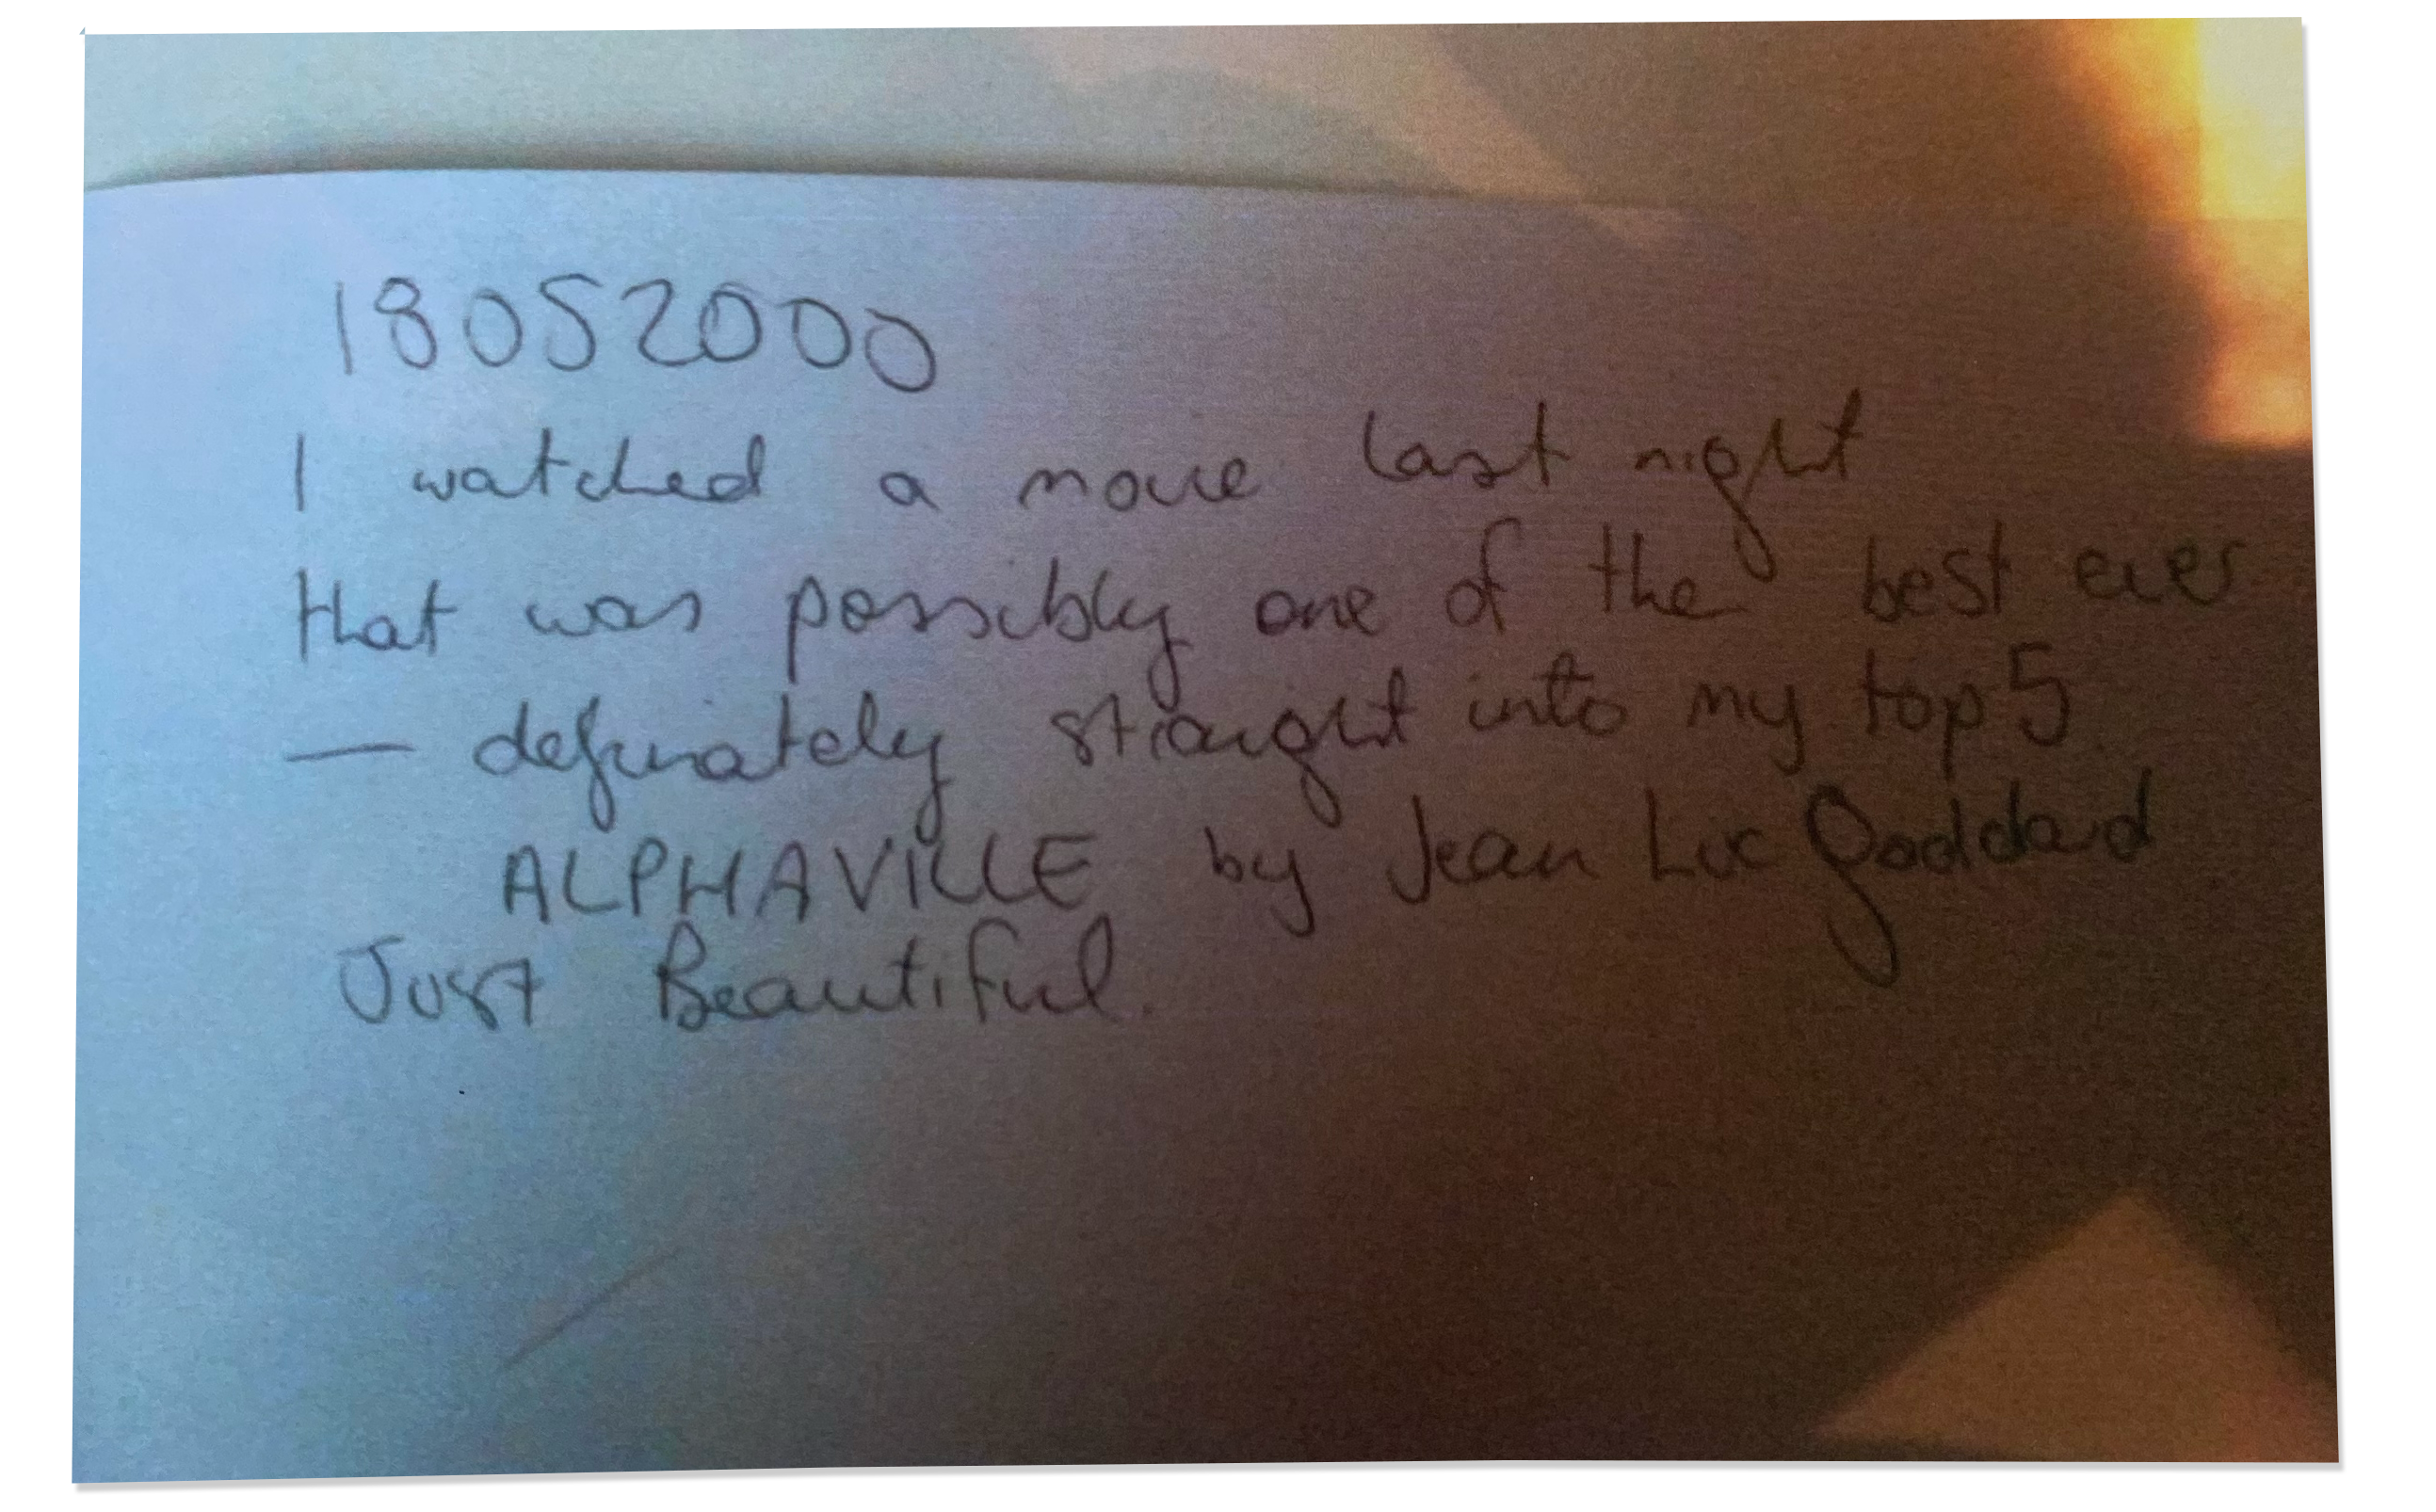 18052000
I watched a movie last night
that was possibly one of the best ever
— definately straight into my top 5
ALPHAVILLE by Jean Luc Goddard
Just Beautiful.